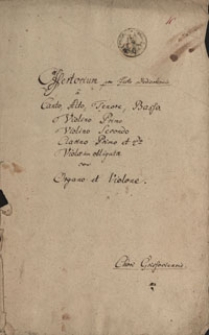 Offertorium pro Festo
à
Canto, Alto, Tenore, Basso
Violino Primo
Violino Secondo
Clarino Primo et 2do
Viola obligata
con
Organo et Violone.
Chori